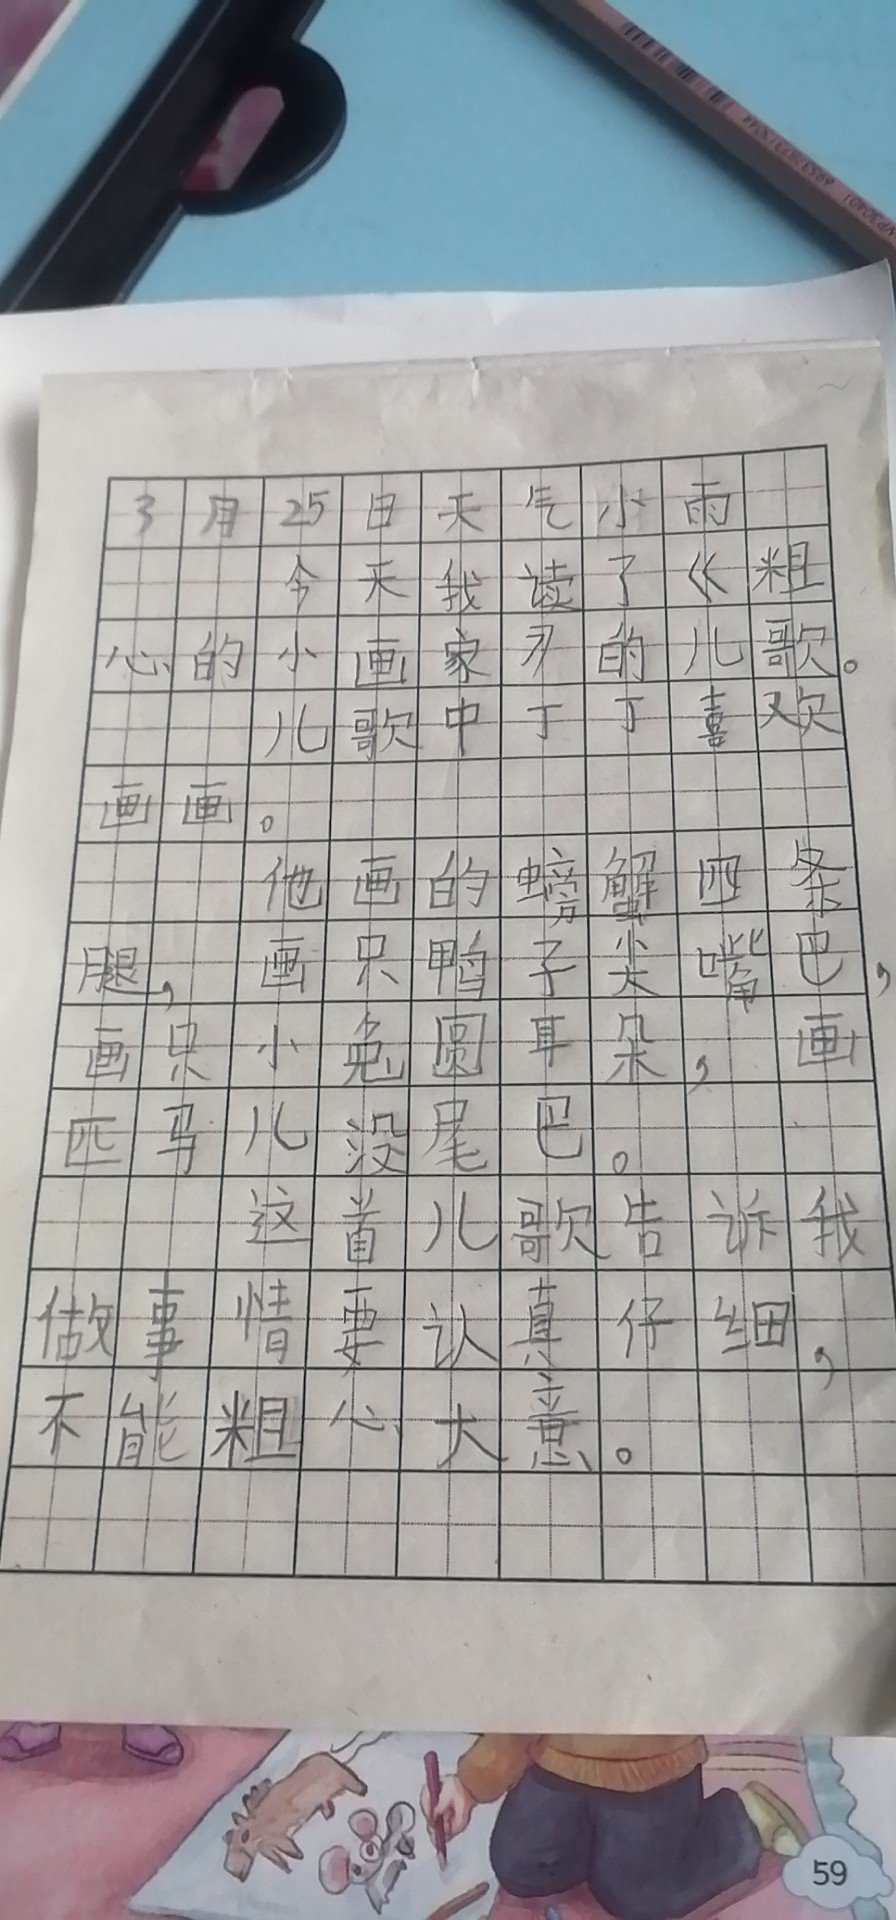 3月25日天气小雨
今天我读了《粗
心的小画家》的儿歌。
儿歌中丁丁喜欢
画画。
他画的螃蟹四条
腿,画只鸭子尖嘴巴,
画只小兔圆耳朵,画
匹马儿没尾巴。
这首儿歌告诉我
做事情要认真仔细,
不能粗心大意。
59